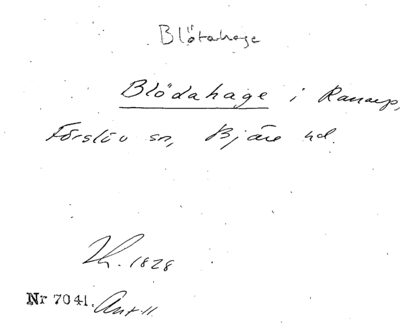 Blötahage
Blödahage i Ranarp,
Förslöv sn, Bjäre hd.
1828
Nr 7041.